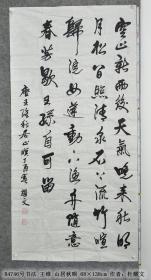 空山新雨后天气晚来秋明
月松间照清泉石上流竹喧
归浣女莲动下渔舟随意
春芳歇王孙自可留
唐王维山居秋暝
84746号书法 王维 山居秋暝 69×138cm 作者：杜耀文